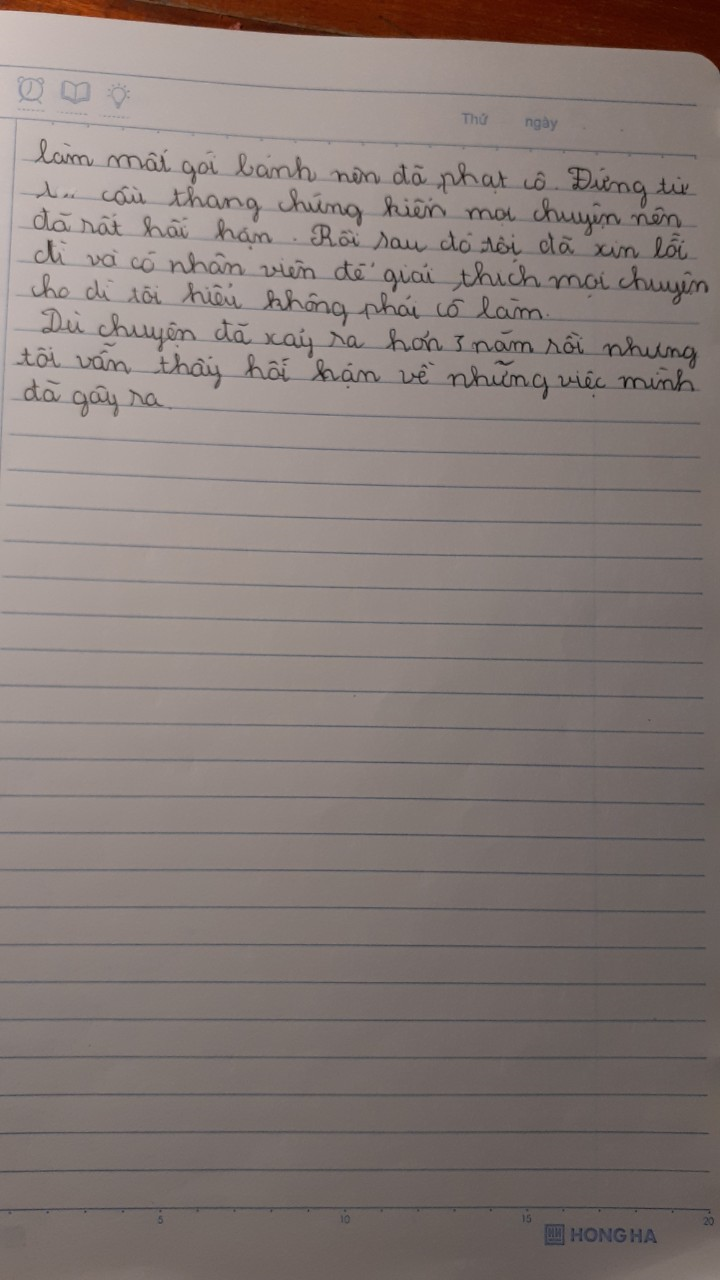 Thứ ngày
làm mất gói bánh nên đã phạt cô. Đứng từ
cầu thang chứng kiến mọi chuyện nên
đã rất hối hận. Rồi sau đó tôi đã xin lỗi
dì và cô nhân viên để giải thích mọi chuyện
cho dì tôi hiểu không phải cô làm.
Dù chuyện đã xảy ra hơn 3 năm rồi nhưng
tôi vẫn thấy hối hận về những việc mình
đã gây ra.
5 10 15 20
HONG HA